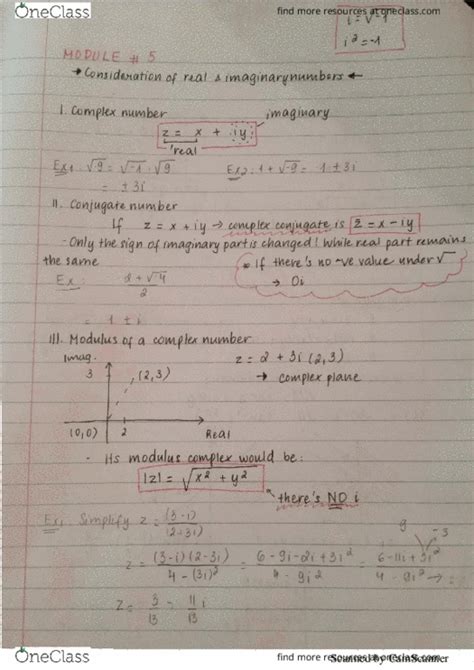 OneClass
find more resources at oneclass.com
i = √-1
i² = -1
MODULE # 5
→ Consideration of real & imaginary numbers ←
I. Complex number
imaginary
z = x + iy
real
Ex1. √-9 = √-1 · √9
= ± 3i
Ex2. 1 + √-9 = 1 ± 3i
II. Conjugate number
If z = x + iy → complex conjugate is z = x - iy
- Only the sign of imaginary part is changed! While real part remains
the same
* If there's no -ve value under √
→ 0i
Ex:
2 + √-4
2
= 1 ± i
III. Modulus of a complex number
Imag.
3
(2,3)
(0,0)
2
Real
z = 2 + 3i (2,3)
→ complex plane
- Its modulus complex would be:
|z| = √x² + y²
there's NO i
Ex: Simplify z = (3-i)
(2+3i)
z = (3-i)(2-3i) = 6-9i-2i+3i² = 6-11i+3i²
4-(3i)² 4-9i² 4-9i²
9
-3
z = 3 - 11 i
13 13
OneClass
find more resources at oneclass.com
Scanned by CamScanner